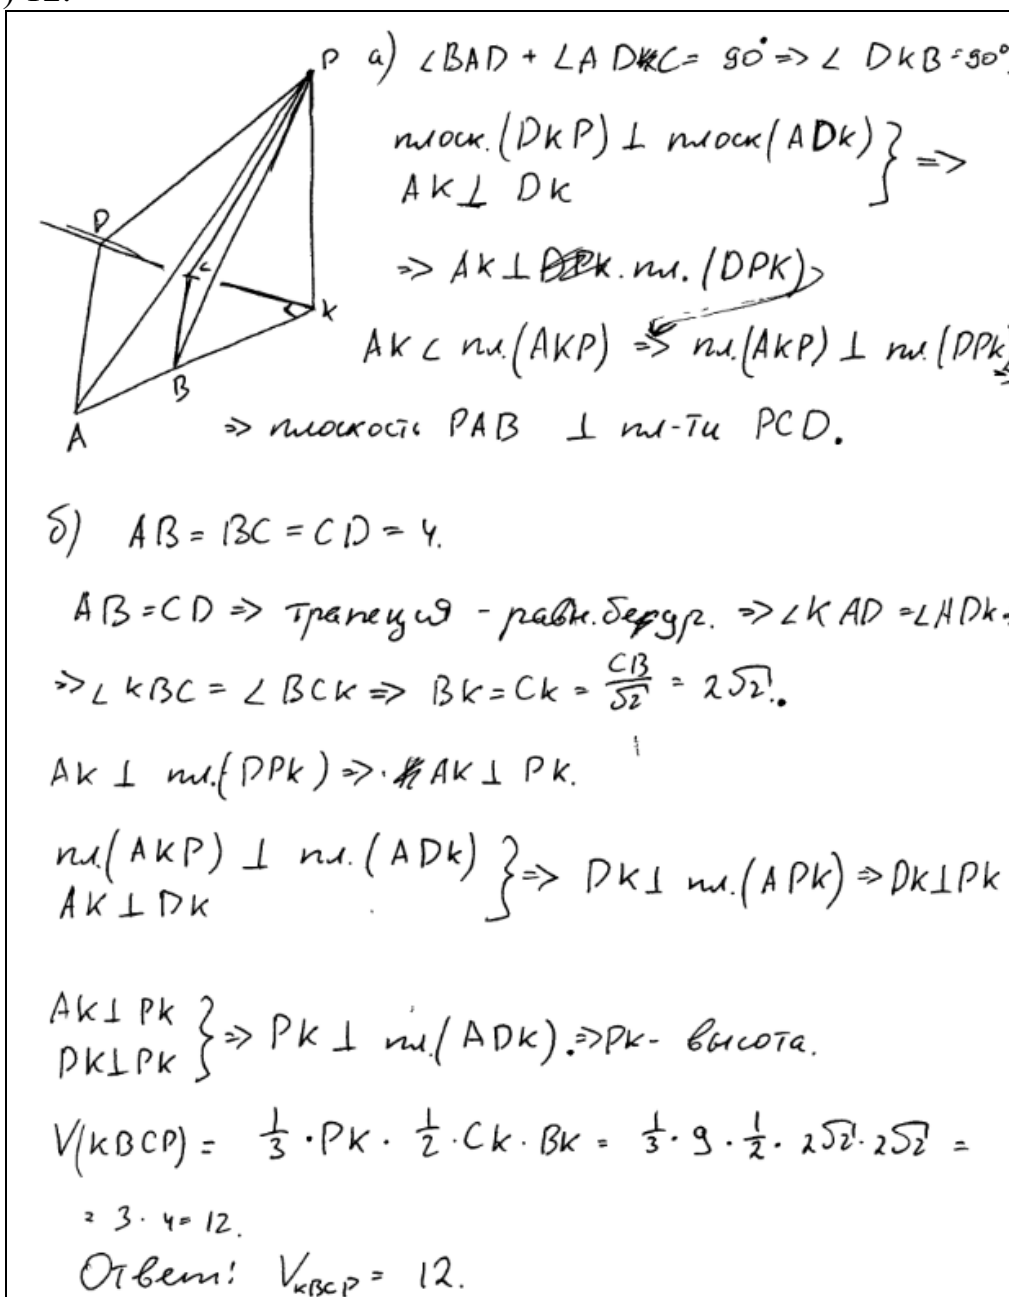 ) 12.
P
D
C
K
B
A
a) ∠BAD + ∠ADC = 90° ⇒ ∠ DKB = 90°
плоск. (DKP) ⊥ плоск (ADK) } ⇒
AK ⊥ DK
⇒ AK ⊥ пл. (DPK)
AK ⊂ пл. (AKP) ⇒ пл. (AKP) ⊥ пл. (DPK)
⇒ плоскость PAB ⊥ пл-ти PCD.
б) AB = BC = CD = 4.
AB = CD ⇒ трапеция - равн. бедр. ⇒ ∠KAD = ∠ADK
⇒ ∠KBC = ∠BCK ⇒ BK = CK = CB/√2 = 2√2.
AK ⊥ пл. (DPK) ⇒ AK ⊥ PK.
пл. (AKP) ⊥ пл. (ADK) } ⇒ DK ⊥ пл. (APK) ⇒ DK ⊥ PK
AK ⊥ DK
AK ⊥ PK } ⇒ PK ⊥ пл. (ADK). ⇒ PK - высота.
DK ⊥ PK
V(KBCP) = 1/3 · PK · 1/2 · CK · BK = 1/3 · 9 · 1/2 · 2√2 · 2√2 =
= 3 · 4 = 12.
Ответ: V_KBCP = 12.